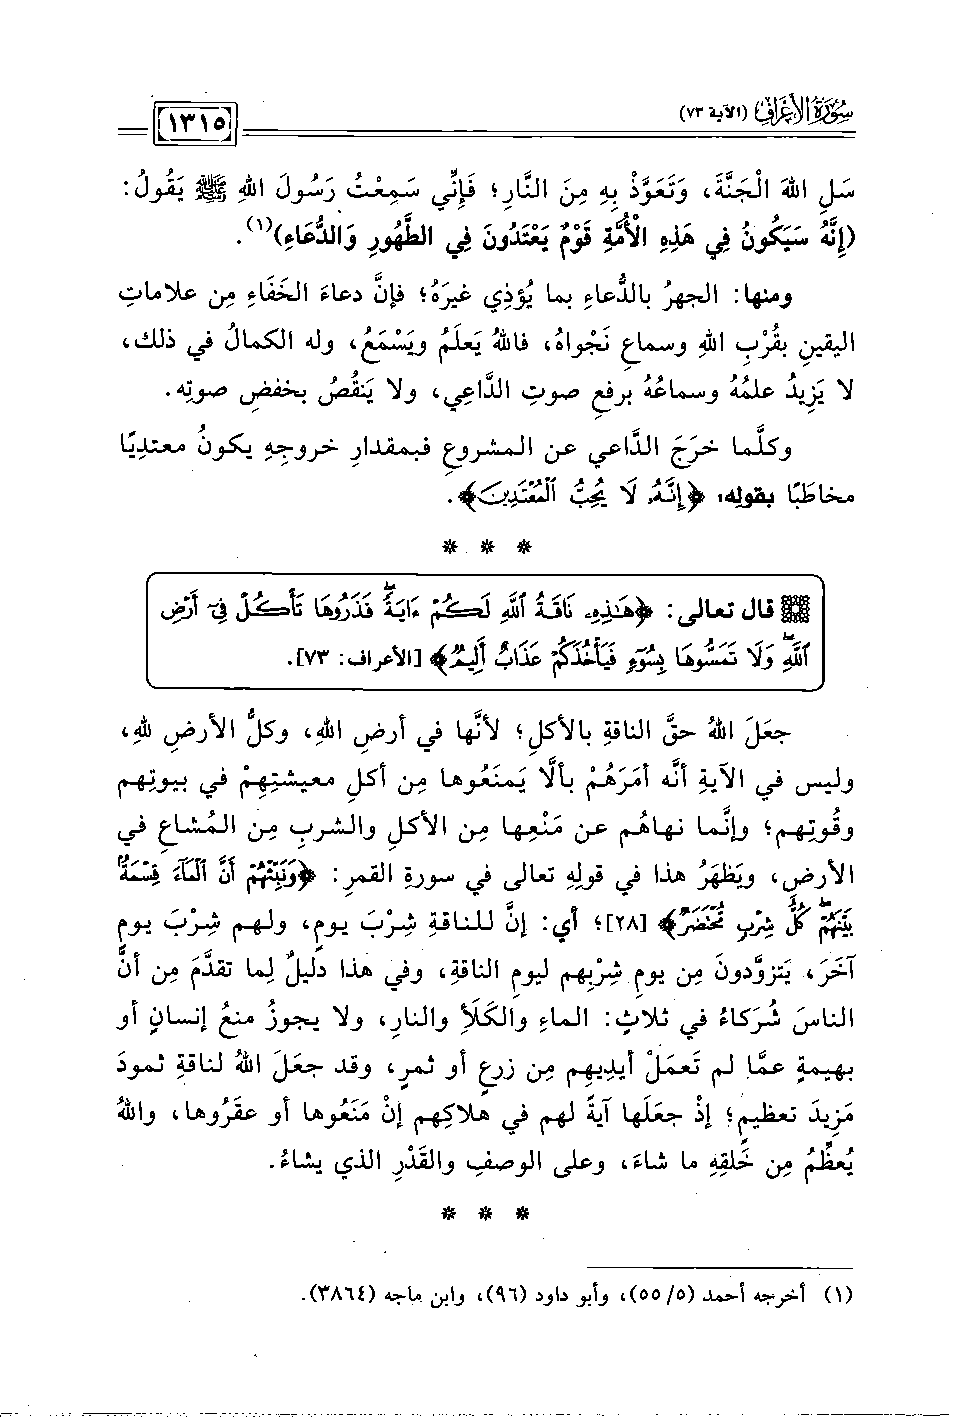 سُورَةُ الأَعْرَافِ (الآية ٧٣)
١٣١٥
سَلِ اللهَ الْجَنَّةَ، وَتَعَوَّذْ بِهِ مِنَ النَّارِ؛ فَإِنِّي سَمِعْتُ رَسُولَ اللهِ ﷺ يَقُولُ:
(إِنَّهُ سَيَكُونُ فِي هَذِهِ الْأُمَّةِ قَوْمٌ يَعْتَدُونَ فِي الطَّهُورِ وَالدُّعَاءِ)(١).
ومنها: الجهرُ بالدُّعاءِ بما يُؤذِي غيرَهُ؛ فإنَّ دعاءَ الخَفَاءِ مِن علاماتِ
اليقينِ بقُرْبِ اللهِ وسماعِ نَجْواهُ، فاللهُ يَعلَمُ ويَسْمَعُ، وله الكمالُ في ذلك،
لا يَزِيدُ علمُهُ وسماعُهُ برفعِ صوتِ الدَّاعِي، ولا يَنقُصُ بخفضِ صوتِه.
وكلَّما خرَجَ الدَّاعي عن المشروعِ فبمقدارِ خروجِهِ يكونُ معتدِيًا
مخاطَبًا بقولِه: ﴿إِنَّهُۥ لَا يُحِبُّ ٱلْمُعْتَدِينَ﴾.
* * *
قال تعالى: ﴿هَٰذِهِۦ نَاقَةُ ٱللَّهِ لَكُمْ ءَايَةًۖ فَذَرُوهَا تَأْكُلْ فِىٓ أَرْضِ
ٱللَّهِۖ وَلَا تَمَسُّوهَا بِسُوٓءٍ فَيَأْخُذَكُمْ عَذَابٌ أَلِيمٌ﴾ [الأعراف: ٧٣].
جعَلَ اللهُ حقَّ الناقةِ بالأكلِ؛ لأنَّها في أرضِ اللهِ، وكلُّ الأرضِ للهِ،
وليس في الآيةِ أنَّه أمَرَهُمْ بألَّا يَمنَعُوها مِن أكلِ معيشتِهِمْ في بيوتِهم
وقُوتِهم؛ وإنَّما نهاهُم عن مَنْعِها مِن الأكلِ والشربِ مِن المُشاعِ في
الأرضِ، ويَظهَرُ هذا في قولِهِ تعالى في سورةِ القمرِ: ﴿وَنَبِّئْهُمْ أَنَّ ٱلْمَآءَ قِسْمَةٌۢ
بَيْنَهُمْۖ كُلُّ شِرْبٍ مُّحْتَضَرٌ﴾ [٢٨]؛ أي: إنَّ للناقةِ شِرْبَ يومٍ، ولهم شِرْبَ يومٍ
آخَرَ، يَتزوَّدونَ مِن يومِ شِرْبِهم ليومِ الناقةِ، وفي هذا دليلٌ لِما تقدَّمَ مِن أنَّ
الناسَ شُرَكاءُ في ثلاثٍ: الماءِ والكَلَأِ والنارِ، ولا يجوزُ منعُ إنسانٍ أو
بهيمةٍ عمَّا لم تَعمَلْ أيدِيهم مِن زرعٍ أو ثمرٍ، وقد جعَلَ اللهُ لناقةِ ثمودَ
مَزِيدَ تعظيمٍ؛ إذْ جعَلَها آيةً لهم في هلاكِهم إنْ مَنَعُوها أو عقَرُوها، واللهُ
يُعظِّمُ مِن خَلقِهِ ما شاءَ، وعلى الوصفِ والقَدْرِ الذي يشاءُ.
* * *
(١) أخرجه أحمد (٥/ ٥٥)، وأبو داود (٩٦)، وابن ماجه (٣٨٦٤).